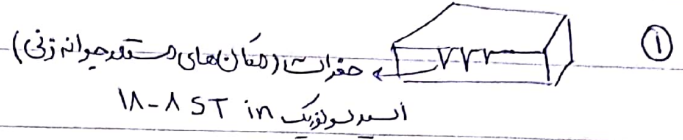 ①
حفرات (مکان‌های مستعد جوانه زنی)
اسید سولفوریک in ۱۸-۸ ST